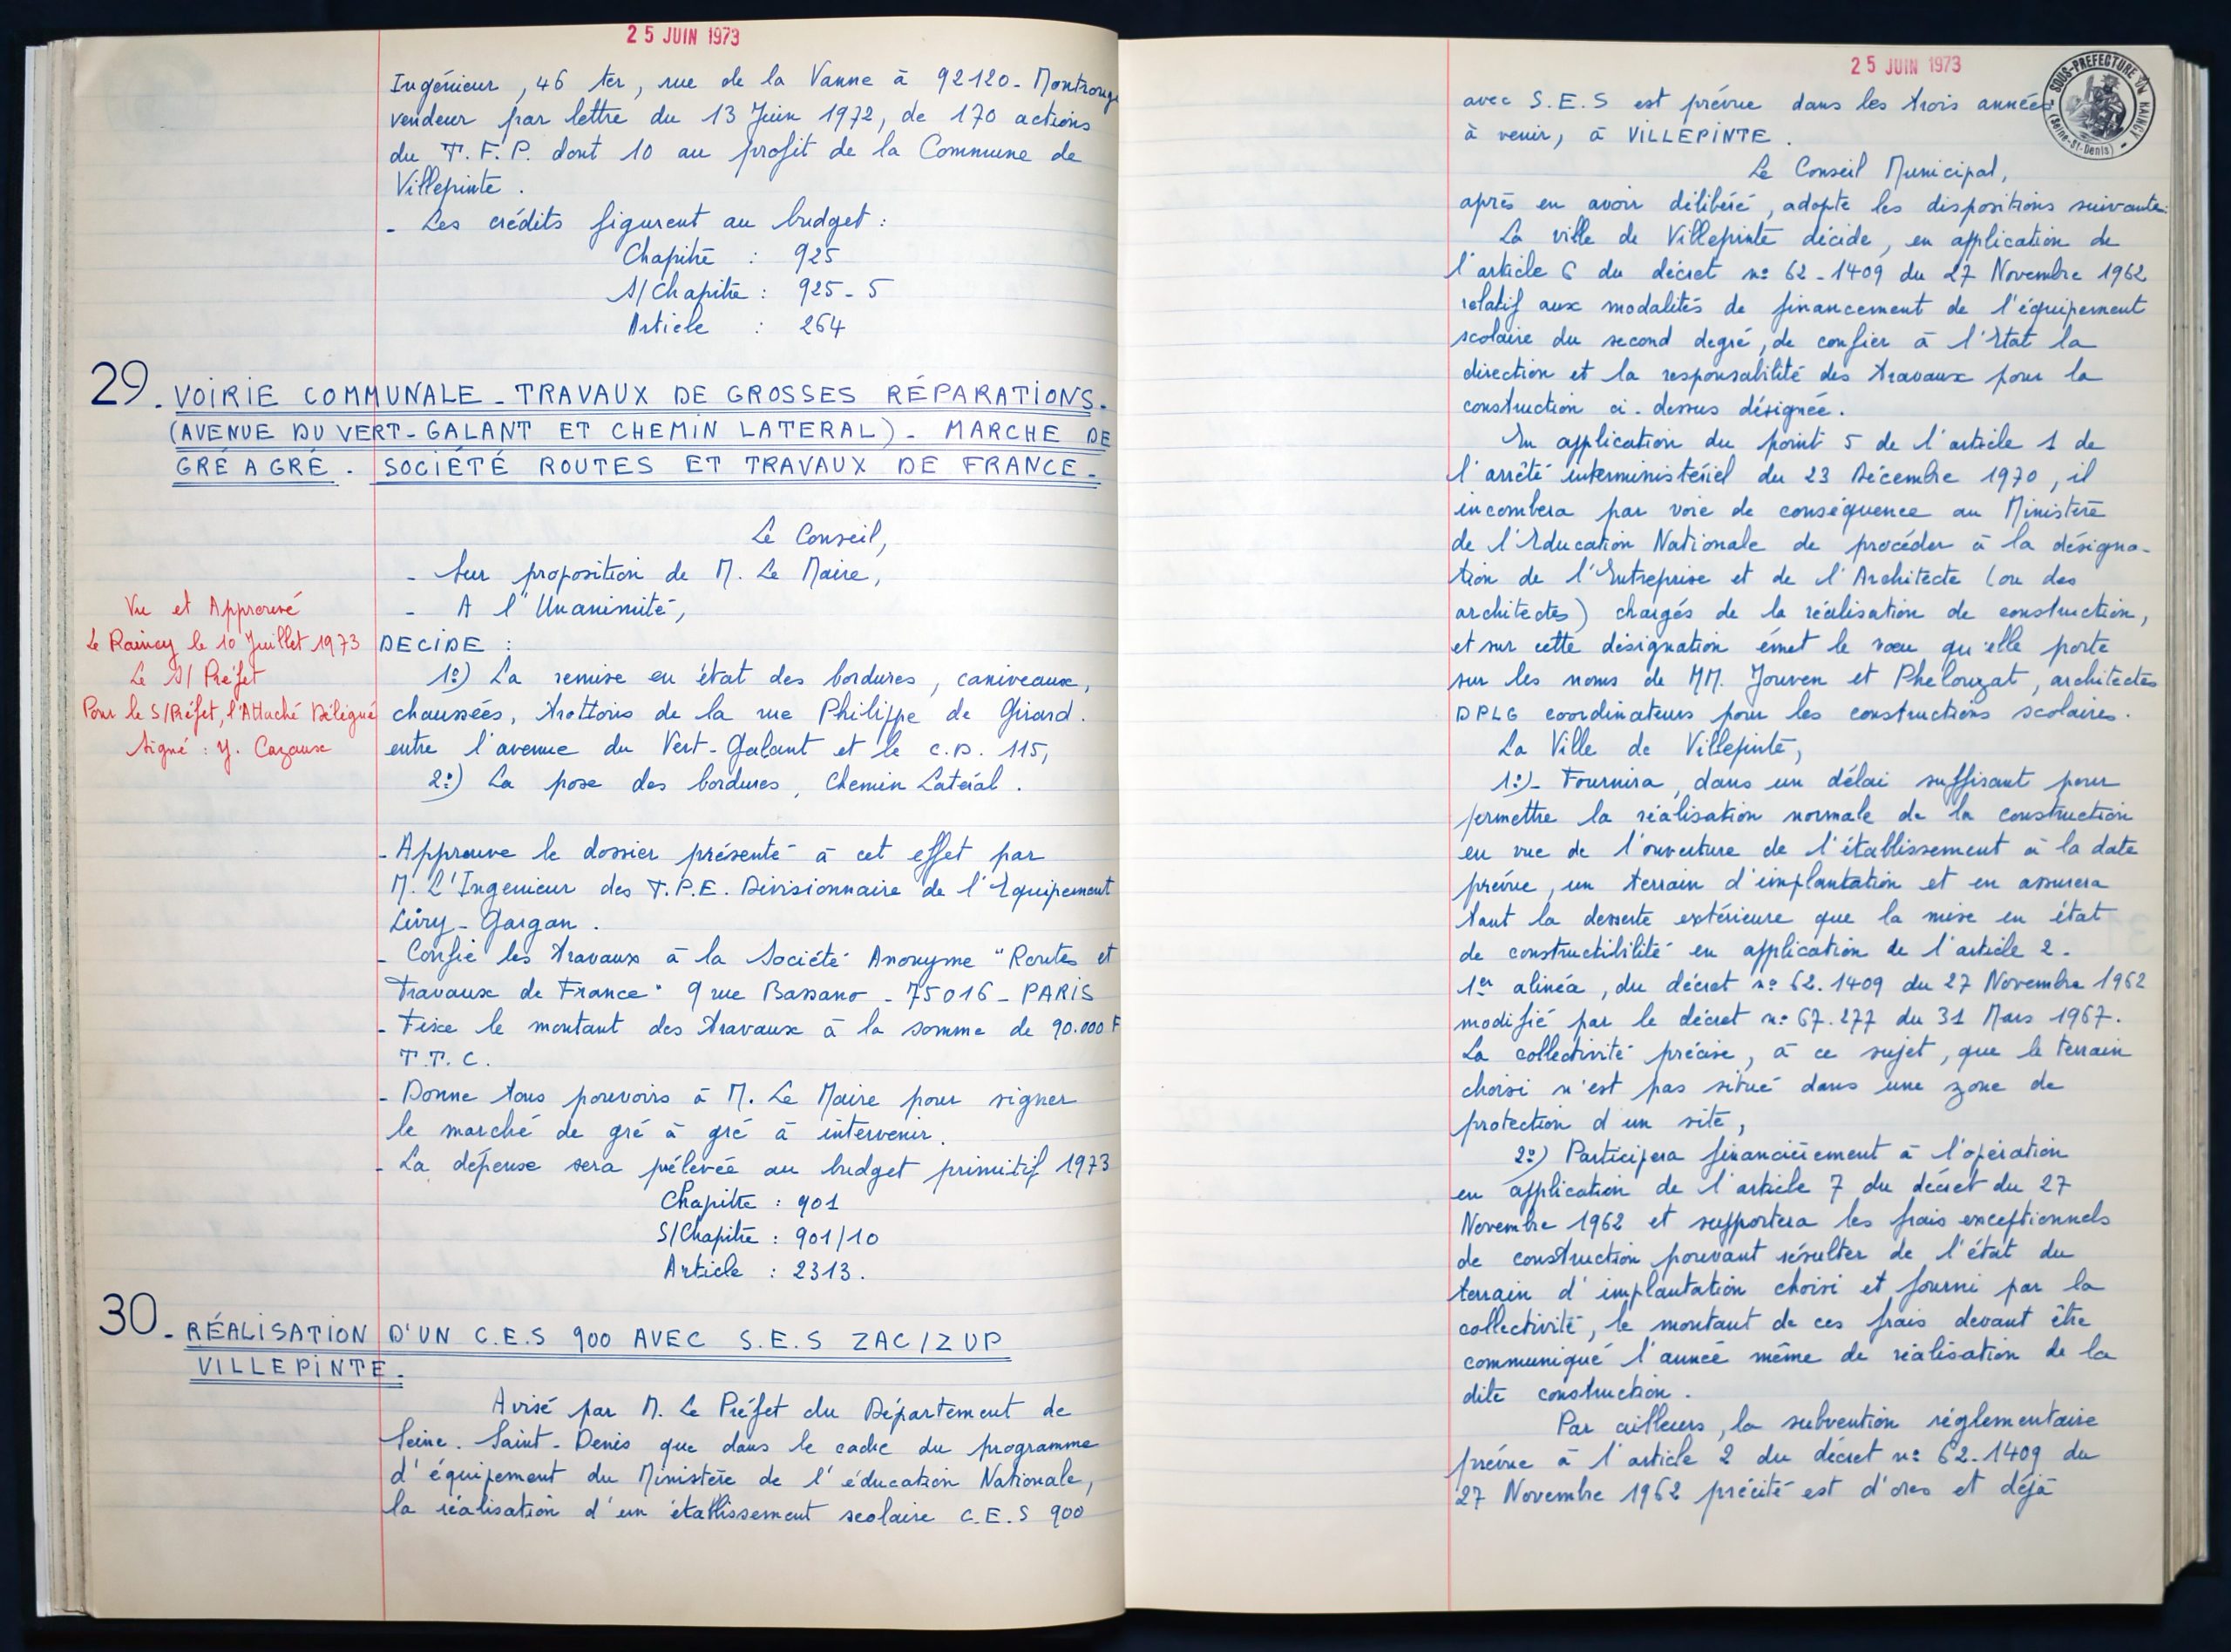 25 JUIN 1973
Ingénieur, 46 ter, rue de la Vanne à 92120 - Montrouge
vendeur par lettre du 13 Juin 1972, de 170 actions
du T.F.P. dont 10 au profit de la Commune de
Villepinte.
- Les crédits figurent au budget :
Chapitre : 925
S/Chapitre : 925-5
Article : 264
29. VOIRIE COMMUNALE - TRAVAUX DE GROSSES RÉPARATIONS.
(AVENUE DU VERT-GALANT ET CHEMIN LATERAL) - MARCHE DE
GRÉ A GRÉ. SOCIÉTÉ ROUTES ET TRAVAUX DE FRANCE -
Le Conseil,
- Sur proposition de M. Le Maire,
- A l'Unanimité,
Vu et Approuvé
Le Raincy le 10 Juillet 1973
Le S/ Préfet
Pour le S/Préfet, l'Attaché Délégué
Signé : Y. Cazaux
DECIDE :
1º) La remise en état des bordures, caniveaux,
chaussées, trottoirs de la rue Philippe de Girard.
entre l'avenue du Vert-Galant et le C.D. 115,
2º) La pose des bordures, Chemin Latéral.
- Approuve le dossier présenté à cet effet par
M. L'Ingenieur des T.P.E. Divisionnaire de l'Equipement
Livry-Gargan.
- Confie les travaux à la Société Anonyme "Routes et
Travaux de France" 9 rue Bassano - 75016 - PARIS
- Fixe le montant des travaux à la somme de 90.000 F
T.T.C.
- Donne tous pouvoirs à M. Le Maire pour signer
le marché de gré à gré à intervenir.
- La dépense sera prélevée au budget primitif 1973
Chapitre : 901
S/Chapitre : 901/10
Article : 2313.
30. RÉALISATION D'UN C.E.S 900 AVEC S.E.S ZAC/ZUP
VILLEPINTE.
Avisé par M. Le Préfet du Département de
Seine-Saint-Denis que dans le cadre du programme
d'équipement du Ministère de l'éducation Nationale,
la réalisation d'un établissement scolaire C.E.S 900
25 JUIN 1973
SOUS-PREFECTURE DU RAINCY
(Seine-St-Denis)
avec S.E.S est prévue dans les trois années
à venir, à VILLEPINTE.
Le Conseil Municipal,
après en avoir délibéré, adopte les dispositions suivantes:
La ville de Villepinte décide, en application de
l'article 6 du décret nº 62-1409 du 27 Novembre 1962
relatif aux modalités de financement de l'équipement
scolaire du second degré, de confier à l'Etat la
direction et la responsabilité des travaux pour la
construction ci-dessus désignée.
En application du point 5 de l'article 1 de
l'arrêté interministériel du 23 Décembre 1970, il
incombera par voie de conséquence au Ministère
de l'Education Nationale de procéder à la désigna-
tion de l'Entreprise et de l'Architecte (ou des
architectes) chargés de la réalisation de construction,
et sur cette désignation émet le voeu qu'elle porte
sur les noms de MM. Jouven et Phelouzat, architectes
DPLG coordinateurs pour les constructions scolaires.
La Ville de Villepinte,
1º)- Fournira, dans un délai suffisant pour
permettre la réalisation normale de la construction
en vue de l'ouverture de l'établissement à la date
prévue, un terrain d'implantation et en assurera
tant la desserte extérieure que la mise en état
de constructibilité en application de l'article 2.
1er alinéa, du décret nº 62.1409 du 27 Novembre 1962
modifié par le décret nº 67.277 du 31 Mars 1967.
La collectivité précise, à ce sujet, que le terrain
choisi n'est pas situé dans une zone de
protection d'un site,
2º) Participera financièrement à l'opération
en application de l'article 7 du décret du 27
Novembre 1962 et supportera les frais exceptionnels
de construction pouvant résulter de l'état du
terrain d'implantation choisi et fourni par la
collectivité, le montant de ces frais devant être
communiqué l'année même de réalisation de la
dite construction.
Par ailleurs, la subvention réglementaire
prévue à l'article 2 du décret nº 62-1409 du
27 Novembre 1962 précité est d'ores et déjà